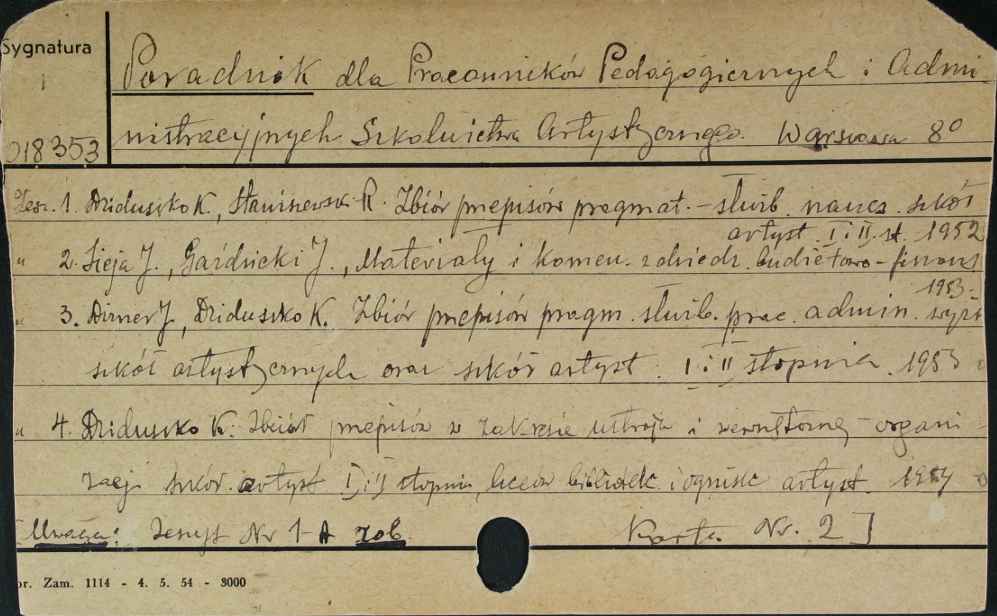 Sygnatura
Poradnik dla Pracowników Pedagogicznych i Admi-
nistracyjnych Szkolnictwa Artystycznego. Warszawa 8°
018353
Zesz. 1. Dziduszko K., Staniszewsk. R. Zbiór przepisów pragmat. - służb. naucz. szkół
artyst. I i II st. 1952
„ 2. Sieja J., Gaździcki J., Materiały i komen. z dziedz. budżetowo - finans
1953.
„ 3. Dirner J., Dziduszko K. Zbiór przepisów pragm. służb. prac. admin.
szkół artystycznych oraz szkół artyst. I i II stopnia. 1953
„ 4. Dziduszko K. Zbiór przepisów z zakresie ustroju i wewnętrznej organi
zacji szkół. artyst I i II stopnia, liceów bibliotek i ognisk artyst. 1954
[Uwaga: Zeszyt Nr 1-A zob. Karta Nr. 2 ]
or. Zam. 1114 - 4. 5. 54 - 3000